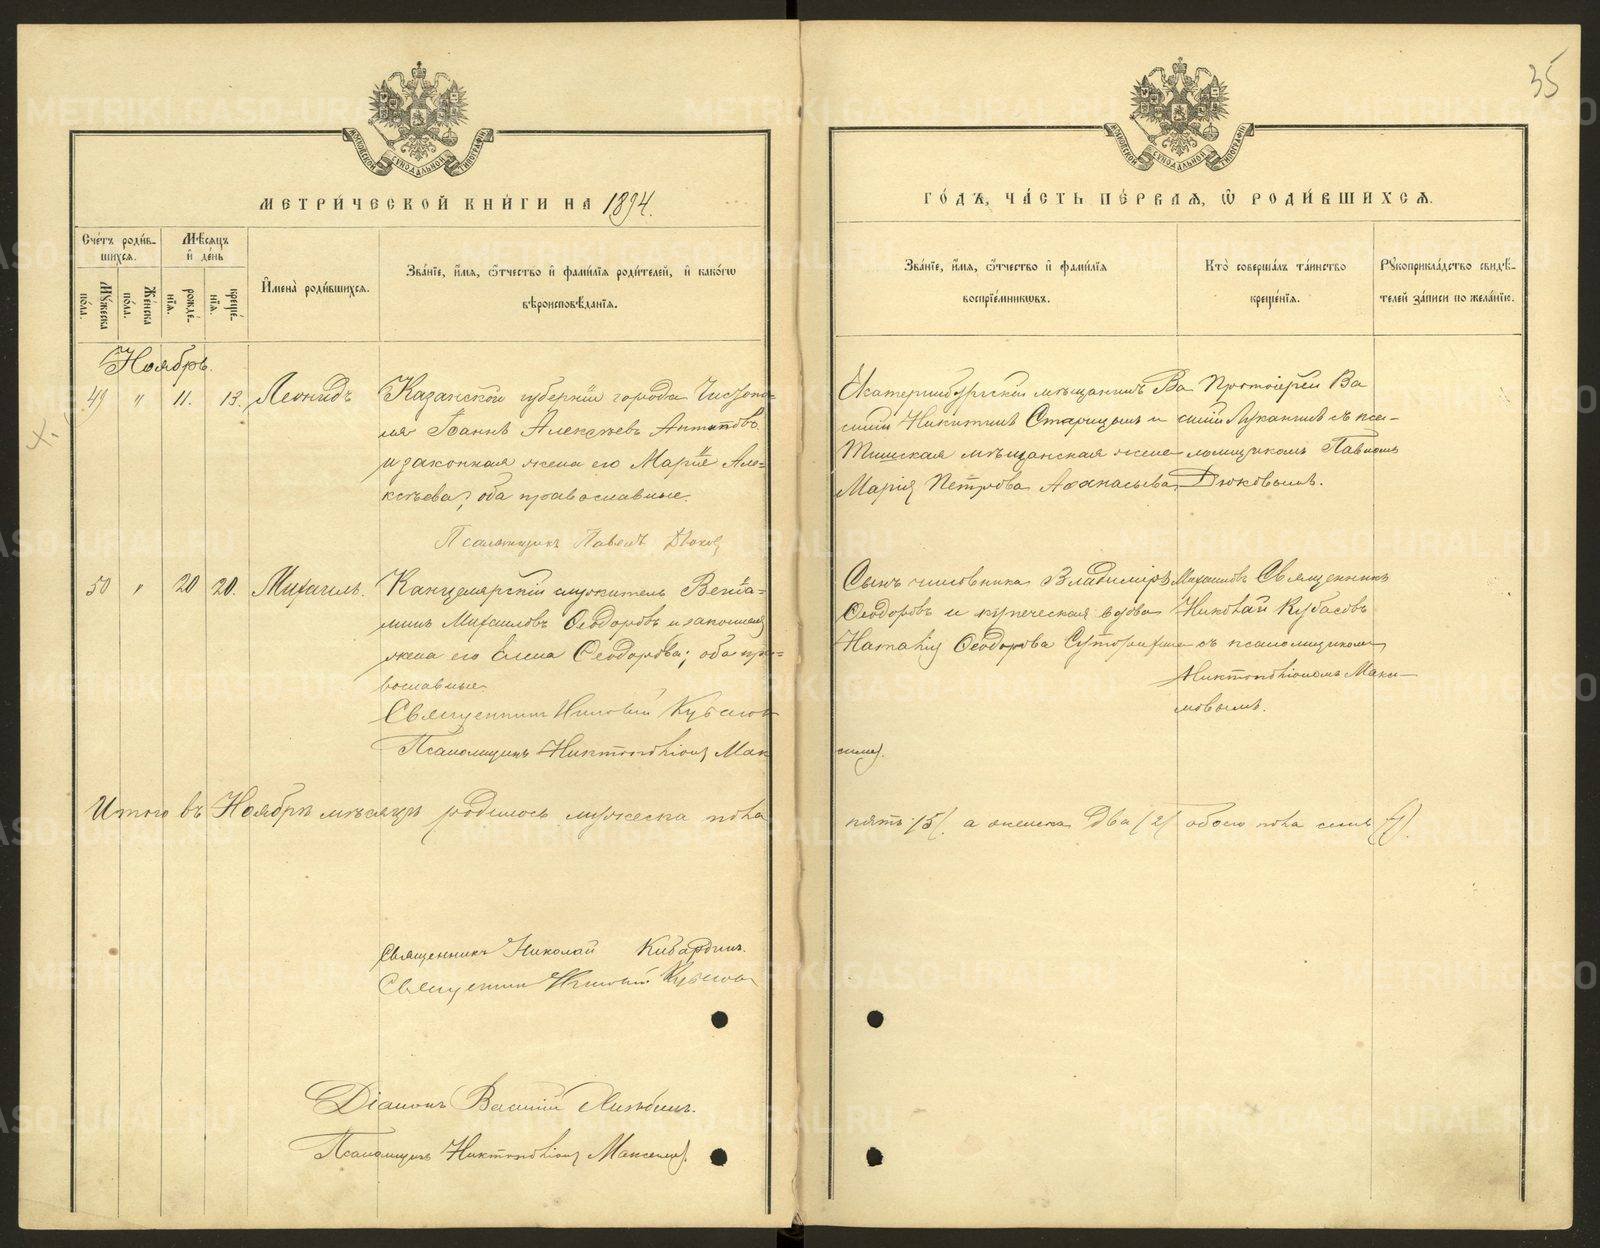 35
МОСКОВСКОЙ СУНОДАЛЬНОЙ ТИПОГРАФІИ
МОСКОВСКОЙ СУНОДАЛЬНОЙ ТИПОГРАФІИ
МЕТРИ́ЧЕСКОЙ КНИ́ГИ НА 1894.
ГО́ДЪ, ЧА́СТЬ ПЕ́РВАѦ, Ѡ РОДИ́ВШИХСѦ.
Сче́тъ роди́в-
шихсѧ.
Мѣ́сѧцъ
и҆ де́нь
Мꙋ́жеска по́ла.
Же́нска по́ла.
рожде́-
нїѧ.
креще́-
нїѧ.
И҆мена̀ роди́вшихсѧ.
Зва́нїе, и҆́мѧ, ѻ҆́тчество и҆ фами́лїѧ роди́телей, и҆ како́гѡ
вѣроисповѣ́данїѧ.
Зва́нїе, и҆́мѧ, ѻ҆́тчество и҆ фами́лїѧ
воспрїе́мникѡвъ.
Кто̀ соверша́лъ та́инство
креще́нїѧ.
Рꙋкоприкла́дство свидѣ́-
телей за́писи по жела́нїю.
Ноябрь.
49 " 11. 13. Леонидъ
Казанской губерніи города Чистопо-
ля Іоаннъ Алексѣевъ Антиповъ
и законная жена его Марія Але-
ксѣева, оба православные.
Псаломщикъ Павелъ Дюковъ
Екатеринбургскій мѣщанинъ Ва
силій Никитинъ Старицынъ и
мѣщанская жена
Марія Петрова Аѳанасьева.
Протоіерей Ва
силій Луканинъ съ пса-
ломщикомъ Павломъ
Дюковымъ.
50 " 20 20. Михаилъ.
Канцелярскій служитель Веніа-
минъ Михаиловъ Ѳеодоровъ и законная
жена его Елена Ѳеодорова; оба пра-
вославные.
Священникъ Николай Кубасов
Псаломщикъ Никтополіонъ Мак
симов.
Сынъ чиновника Владиміръ Михаиловъ
Ѳеодоровъ и купеческая вдова
Наталія Ѳеодорова
Священникъ
Николай Кубасовъ
съ псаломщикомъ
Никтополіономъ Макси-
мовымъ.
Итого въ Ноябрѣ мѣсяцѣ родилось мужеска пола
пять /5/. а женска два /2/ обоего пола семь /7/.
Священникъ Николай Кибардинъ.
Священникъ Николай Кубасов
Діаконъ Василій
Псаломщикъ Никтополіонъ Максимов.
METRIKI.GASO-URAL.RU